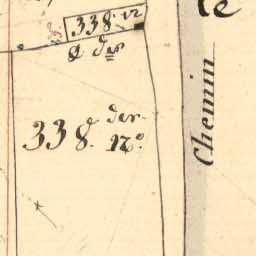 le
338. 12
& der
338. & der
12°.
Chemin